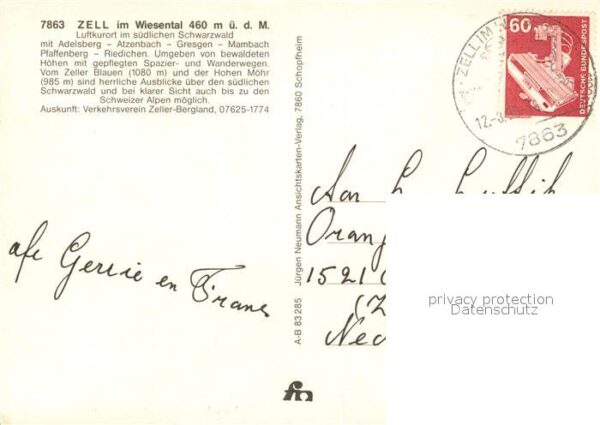 7863 ZELL im Wiesental 460 m ü. d. M.
Luftkurort im südlichen Schwarzwald
mit Adelsberg – Atzenbach – Gresgen – Mambach
Pfaffenberg – Riedichen. Umgeben von bewaldeten
Höhen mit gepflegten Spazier- und Wanderwegen.
Vom Zeller Blauen (1080 m) und der Hohen Möhr
(985 m) sind herrliche Ausblicke über den südlichen
Schwarzwald und bei klarer Sicht auch bis zu den
Schweizer Alpen möglich.
Auskunft: Verkehrsverein Zeller-Bergland, 07625-1774
afz Gerrie en Frans
A-B 83285 Jürgen Neumann Ansichtskarten-Verlag, 7860 Schopfheim
60
DEUTSCHE BUNDESPOST
ZELL IM
12.-8.
7863
Aan
Oran
1521
(Z
Ned
privacy protection
Datenschutz